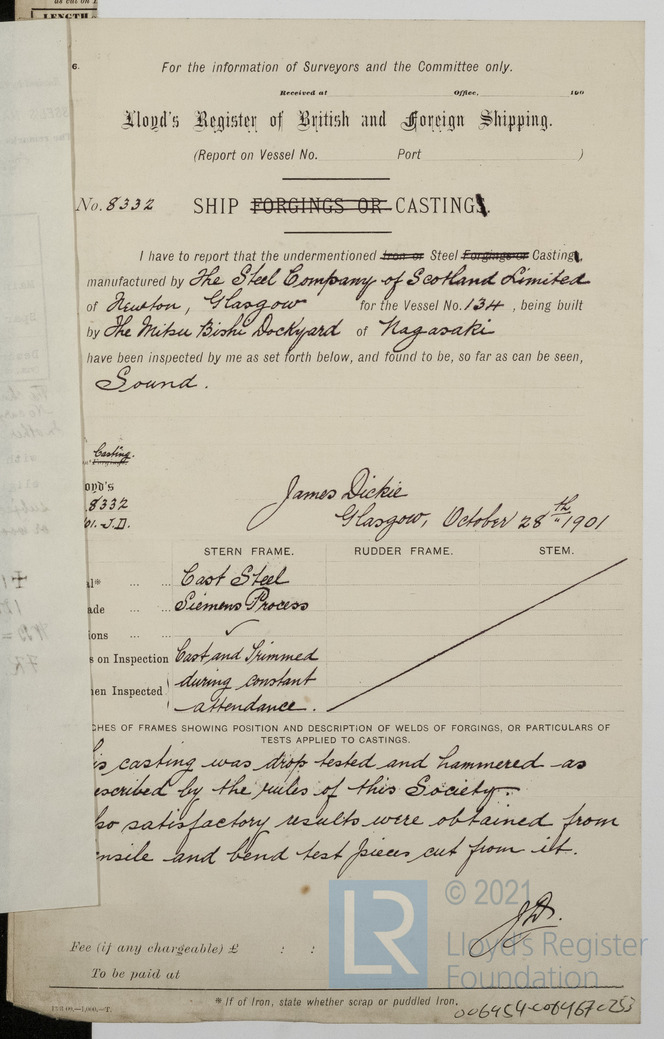 as cut on
LENGTH
6.
For the information of Surveyors and the Committee only.
Received at Office, 190
Lloyd's Register of British and Foreign Shipping.
(Report on Vessel No. Port )
No. 8332 SHIP FORGINGS OR CASTING.
I have to report that the undermentioned Iron or Steel Forgings or Casting,
manufactured by The Steel Company of Scotland Limited
of Newton, Glasgow for the Vessel No. 134, being built
by The Mitsu Bishi Dockyard of Nagasaki
have been inspected by me as set forth below, and found to be, so far as can be seen,
Sound.
Casting.
oyd's
8332
01. J.D.
James Dickie
Glasgow, October 28th 1901
STERN FRAME. RUDDER FRAME. STEM.
al* ... ... Cast Steel
ade ... ... Siemens Process
ions ... ... ✓
s on Inspection Cast and Trimmed
en Inspected during constant
attendance.
CHES OF FRAMES SHOWING POSITION AND DESCRIPTION OF WELDS OF FORGINGS, OR PARTICULARS OF
TESTS APPLIED TO CASTINGS.
is casting was drop tested and hammered as
escribed by the rules of this Society.
lso satisfactory results were obtained from
ensile and bend test pieces cut from it.
J.D.
© 2021
LR
Lloyd's Register
Foundation
Fee (if any chargeable) £ : :
To be paid at
* If of Iron, state whether scrap or puddled Iron.
006454-006467-0253